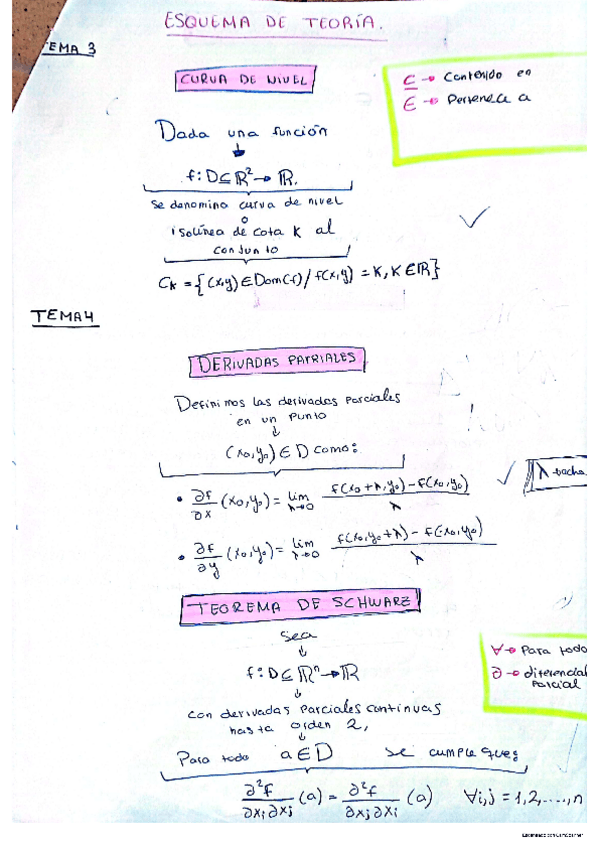 ESQUEMA DE TEORÍA.
TEMA 3
CURVA DE NIVEL
⊆ → Contenido en
∈ → Pertenece a
Dada una función
↓
f: D⊆ℝ² → ℝ.
se denomina curva de nivel
o
isolínea de cota K al
conjunto
C_K = {(x,y) ∈ Dom(f) / f(x,y) = K, K ∈ ℝ}
TEMA 4
DERIVADAS PATRIALES
Definimos las derivadas parciales
en un punto
↓
(x₀,y₀) ∈ D como:
• ∂f/∂x (x₀,y₀) = lim λ→0 f(x₀+λ,y₀) - f(x₀,y₀) / λ
λ-tacha
• ∂f/∂y (x₀,y₀) = lim λ→0 f(x₀,y₀+λ) - f(x₀,y₀) / λ
TEOREMA DE SCHWARZ
Sea
↓
f: D⊆ℝⁿ → ℝ
↓
con derivadas parciales continuas
hasta orden 2,
↓
Para todo a∈D se cumple que:
∀ → Para todo
∂ → diferencial
parcial
∂²f/∂xᵢ∂xⱼ (a) = ∂²f/∂xⱼ∂xᵢ (a) ∀i,j = 1,2,....,n